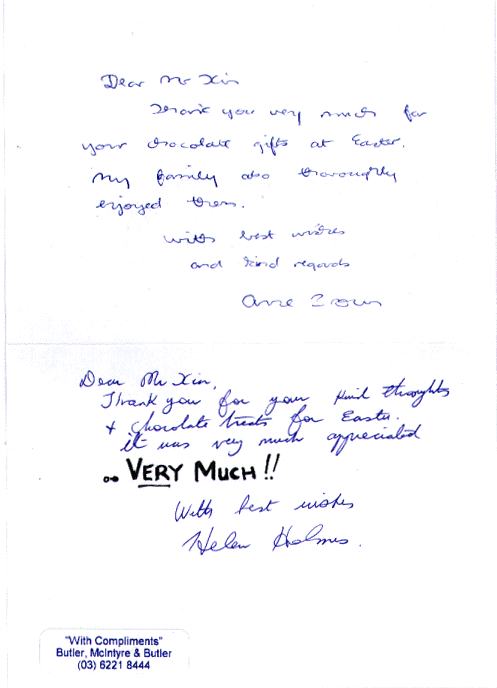 Dear Mr Xin
Thank you very much for
your chocolate gifts at Easter.
My family also thoroughly
enjoyed them.
With best wishes
and kind regards
Anne
Dear Mr Xin,
Thank you for your kind thoughts
+ chocolate treats for Easter.
it was very much appreciated
.. VERY MUCH!!
With best wishes
Helen Holmes.
"With Compliments"
Butler, McIntyre & Butler
(03) 6221 8444